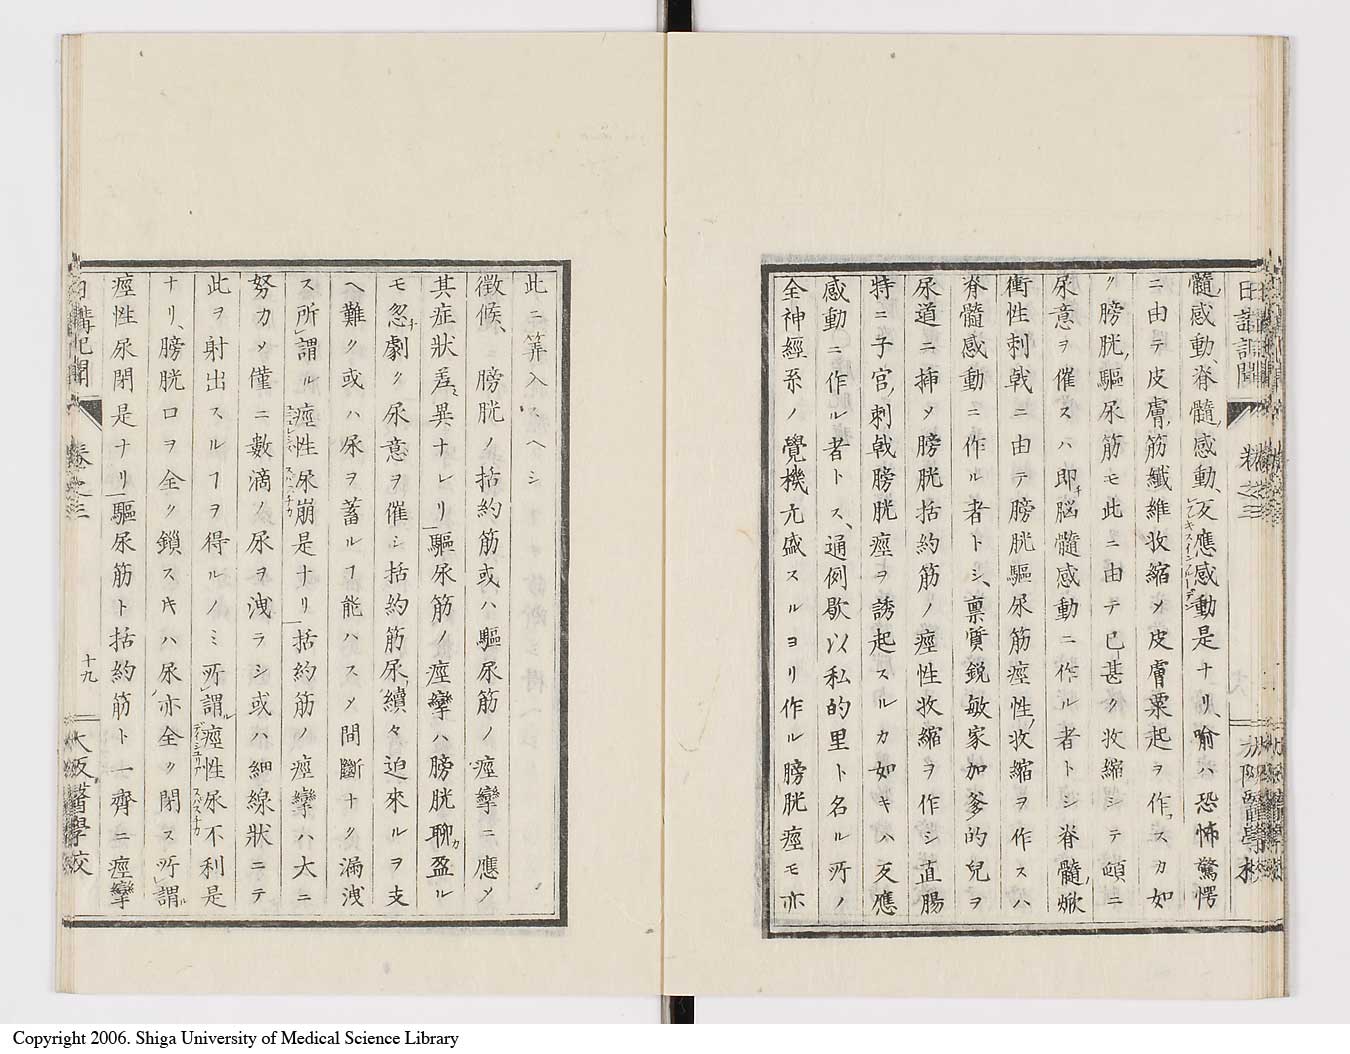 髓感動、脊髓感動、反應感動是ナリ、喻ハ恐怖驚愕
レフレキスインフルーデン
ニ由テ皮膚筋纖維收縮メ皮膚粟起ヲ作スカ如
ク膀胱驅尿筋モ此ニ由テ已甚ク收縮シテ頓ニ
尿意ヲ催スハ即チ脳髓感動ニ作ル者トシ脊髓焮
衝性刺戟ニ由テ膀胱驅尿筋痙性收縮ヲ作スハ
脊髓感動ニ作ル者トシ、禀質鋭敏家加爹的兒ヲ
尿道ニ挿メ膀胱括約筋ノ痙性收縮ヲ作シ直腸
特ニ子宮刺戟膀胱痙ヲ誘起スルカ如キハ反應
感動ニ作ル者トス、通例歇以私的里ト名ル所ノ
全神經系ノ覺機亢盛スルヨリ作ル膀胱痙モ亦
此ニ算入スヘシ
徴候、ニ膀胱ノ括約筋或ハ驅尿筋ノ痙攣ニ應メ
其症狀差異ナレリ驅尿筋ノ痙攣ハ膀胱聊カ盈ル
モ忽チ劇ク尿意ヲ催シ括約筋尿續々迫來ルヲ支
ヘ難ク或ハ尿ヲ蓄ルヿ能ハスメ間斷ナク漏洩
ス所謂ル痙性尿崩是ナリ括約筋ノ痙攣ハ大ニ
スパスチカ
努力メ僅ニ數滴ノ尿ヲ洩ラシ或ハ細線狀ニテ
此ヲ射出スルヿヲ得ルノミ所謂ル痙性尿不利是
ディシュリア スパスチカ
ナリ、膀胱口ヲ全ク鎖スキハ尿亦全ク閉ス所謂ル
痙性尿閉是ナリ驅尿筋ト括約筋ト一齊ニ痙攣
日講記聞 卷之三 十九 大坂醫學校